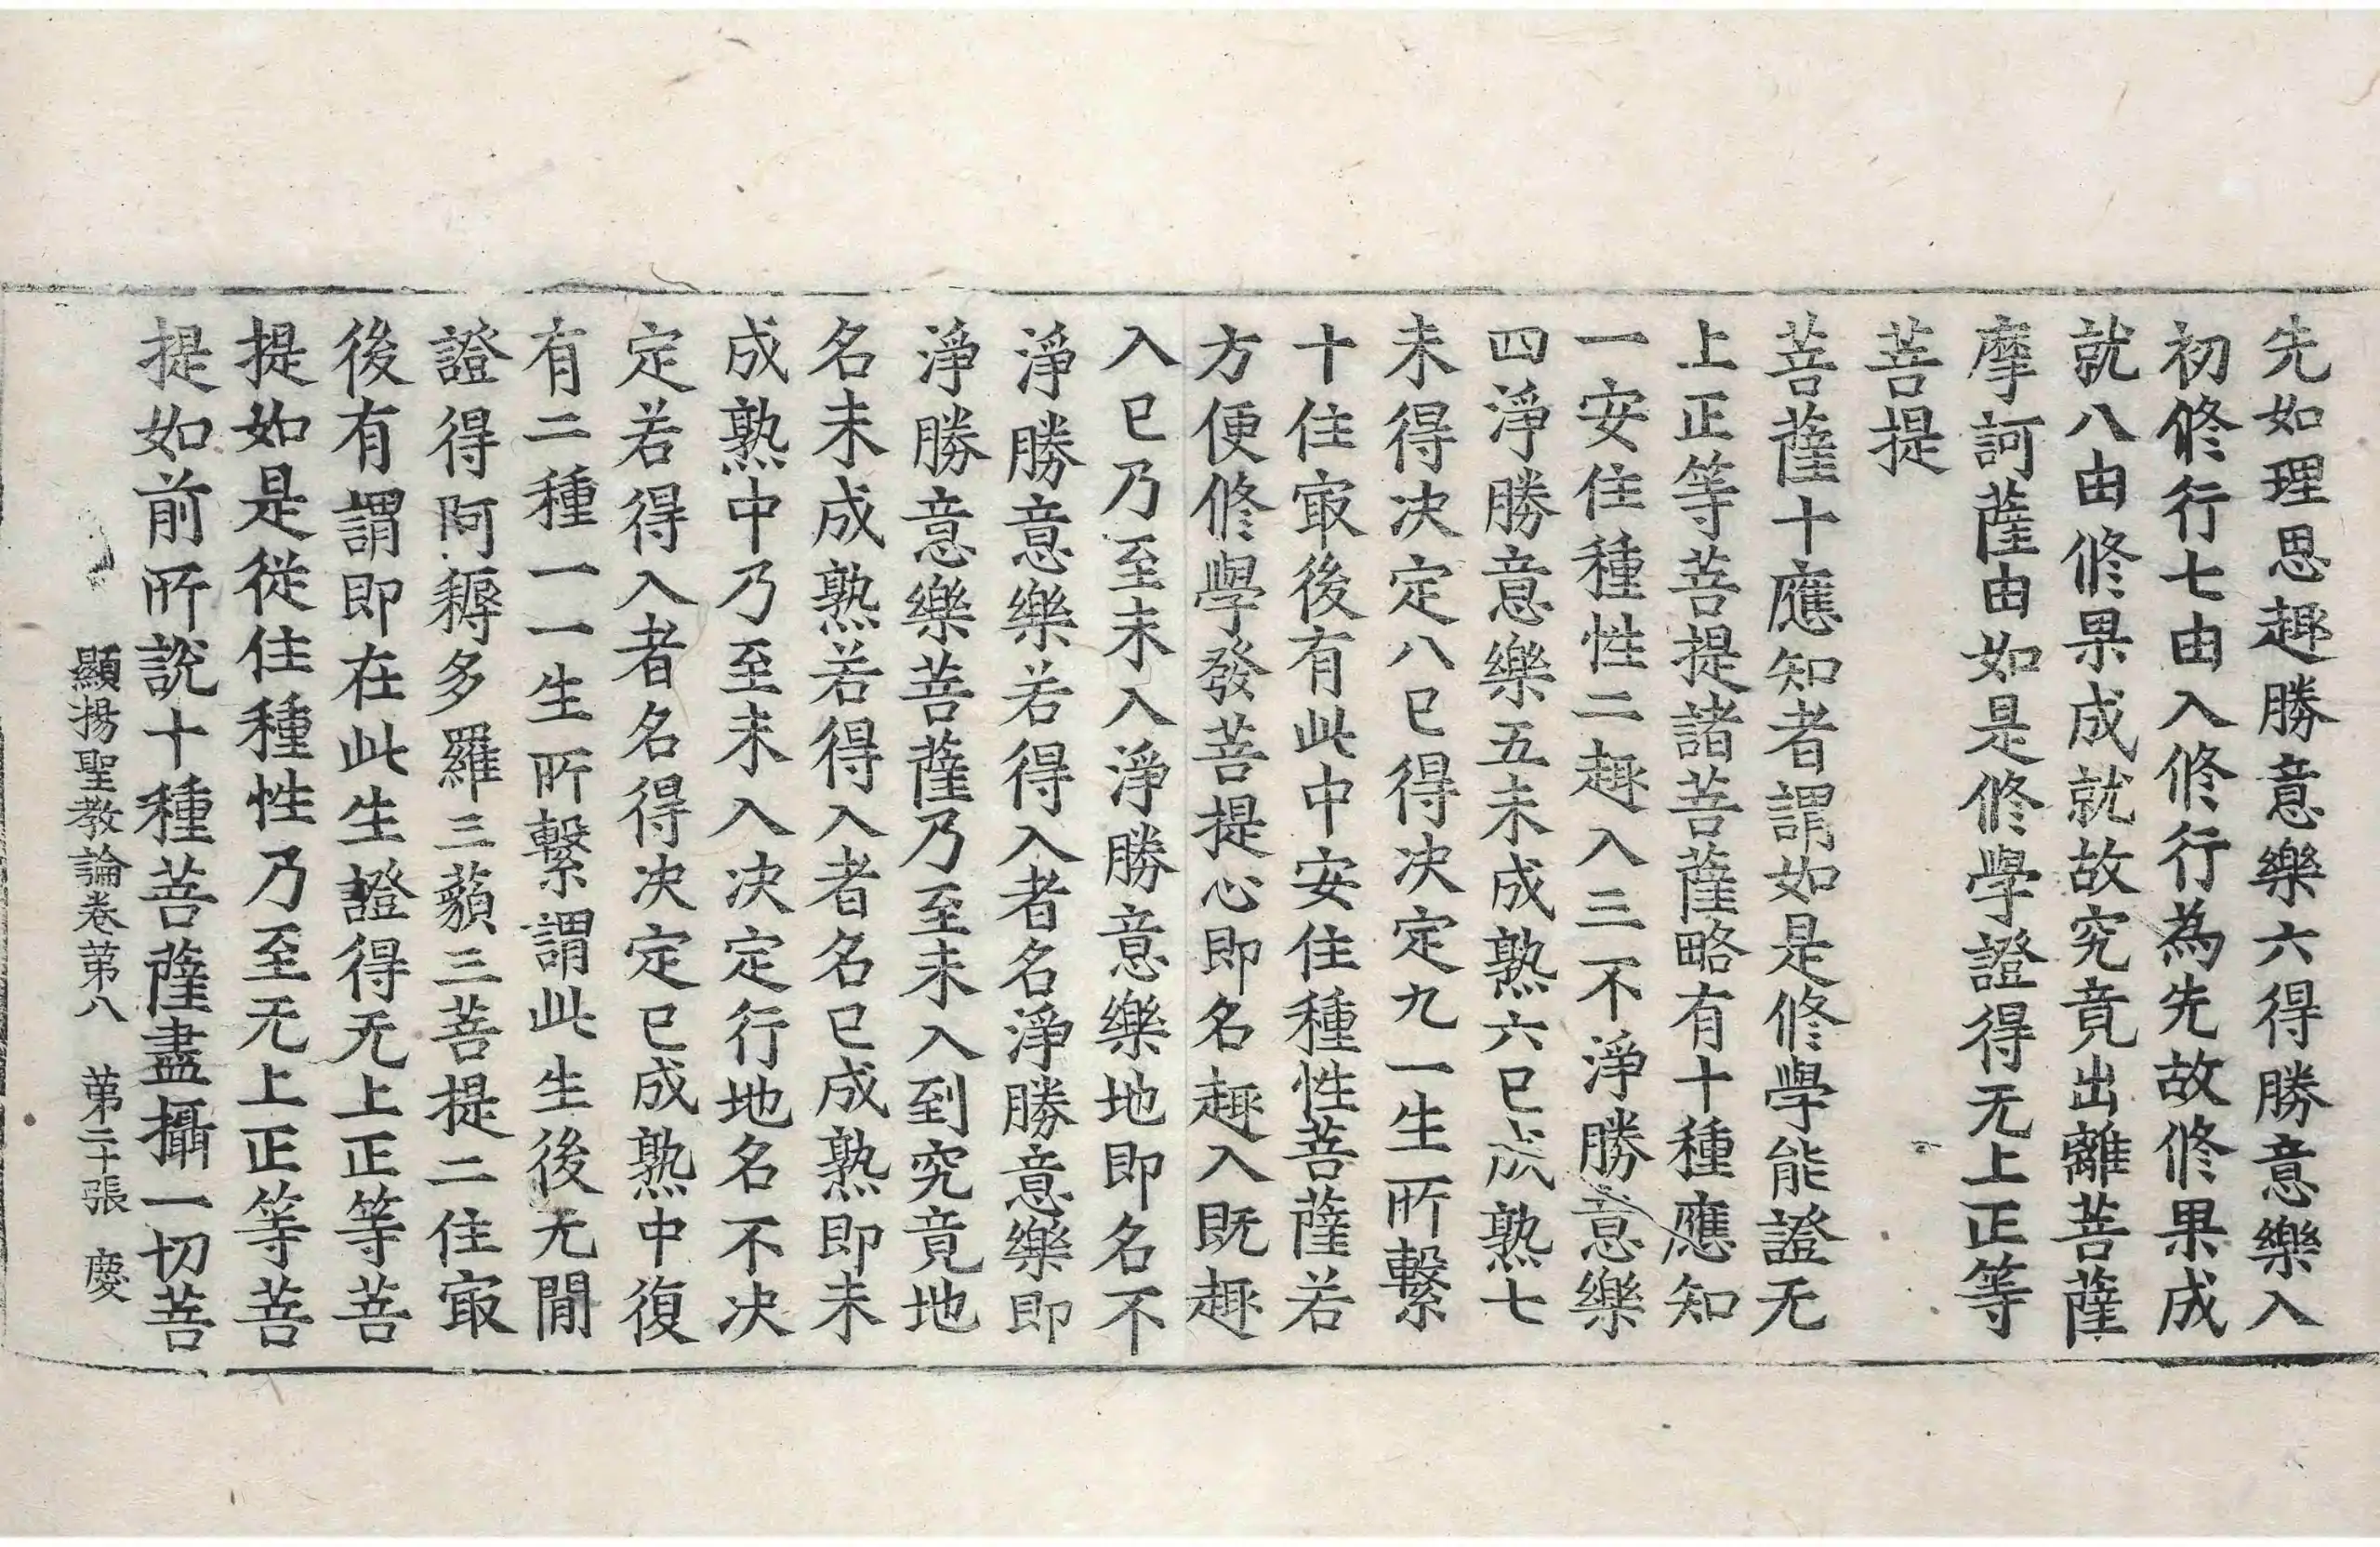 先如理思趣勝意樂六得勝意樂入
初修行七由入修行為先故修果成
就八由修果成就故究竟出離菩薩
摩訶薩由如是修學證得无上正等
菩提
菩薩十應知者謂如是修學能證无
上正等菩提諸菩薩略有十種應知
一安住種性二趣入三不淨勝意樂
四淨勝意樂五未成熟六已成熟七
未得决定八已得决定九一生所繫
十住㝡後有此中安住種性菩薩若
方便修學發菩提心即名趣入既趣
入已乃至未入淨勝意樂地即名不
淨勝意樂若得入者名淨勝意樂即
淨勝意樂菩薩乃至未入到究竟地
名未成熟若得入者名已成熟即未
成熟中乃至未入决定行地名不决
定若得入者名得决定已成熟中復
有二種一一生所繫謂此生後无間
證得阿耨多羅三藐三菩提二住㝡
後有謂即在此生證得无上正等菩
提如是從住種性乃至无上正等菩
提如前所說十種菩薩盡攝一切菩
顯揚聖教論卷苐八 苐二十張 慶